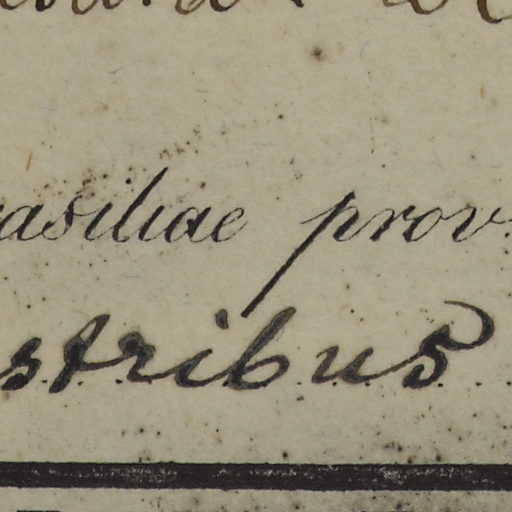 asiliae prov.
stribus